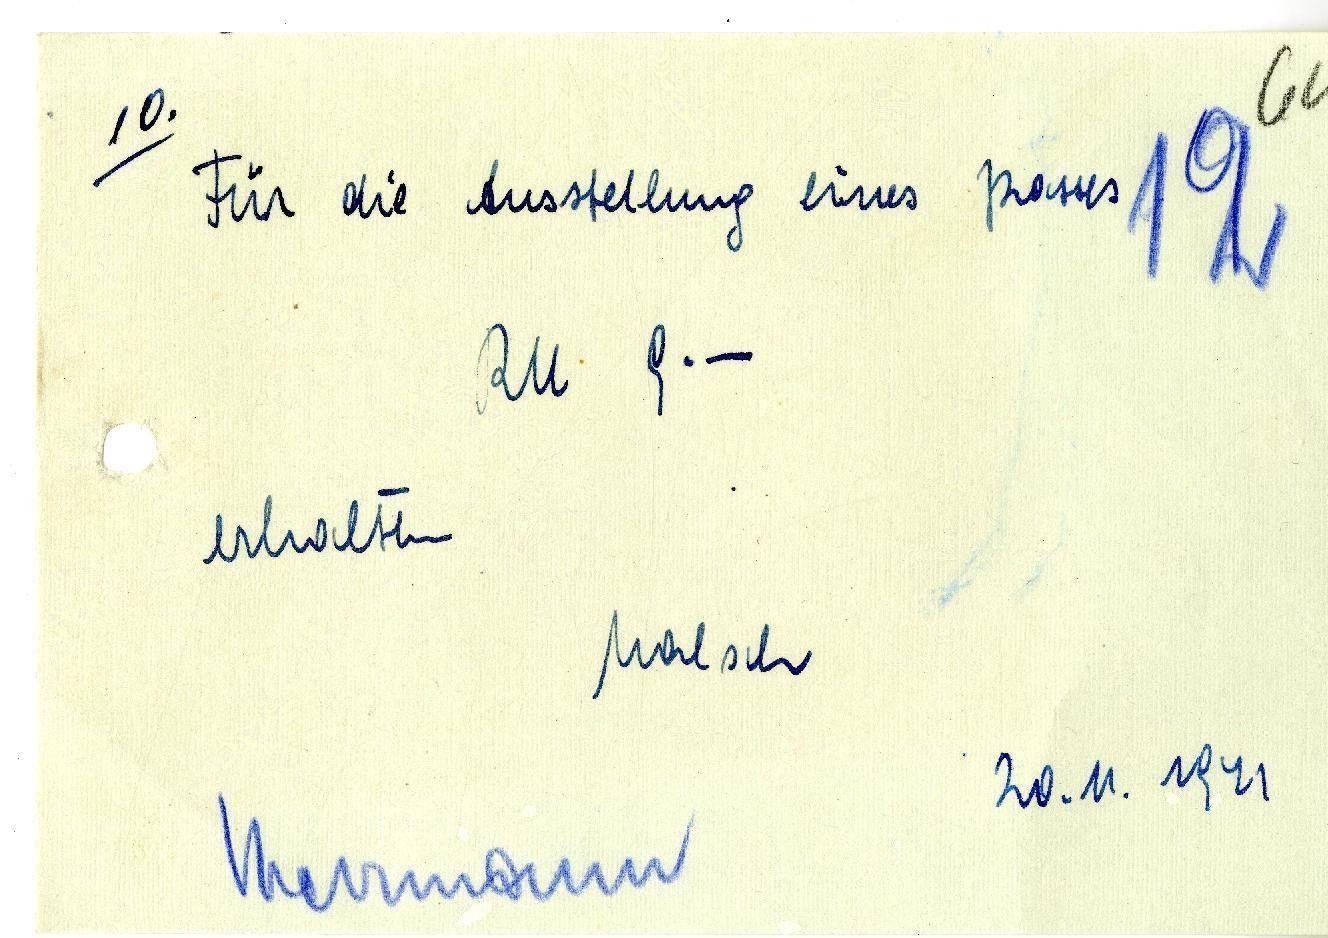 10.
Für die Ausstellung eines Passes
12
RM 9.—
erhalten
20.11.1941